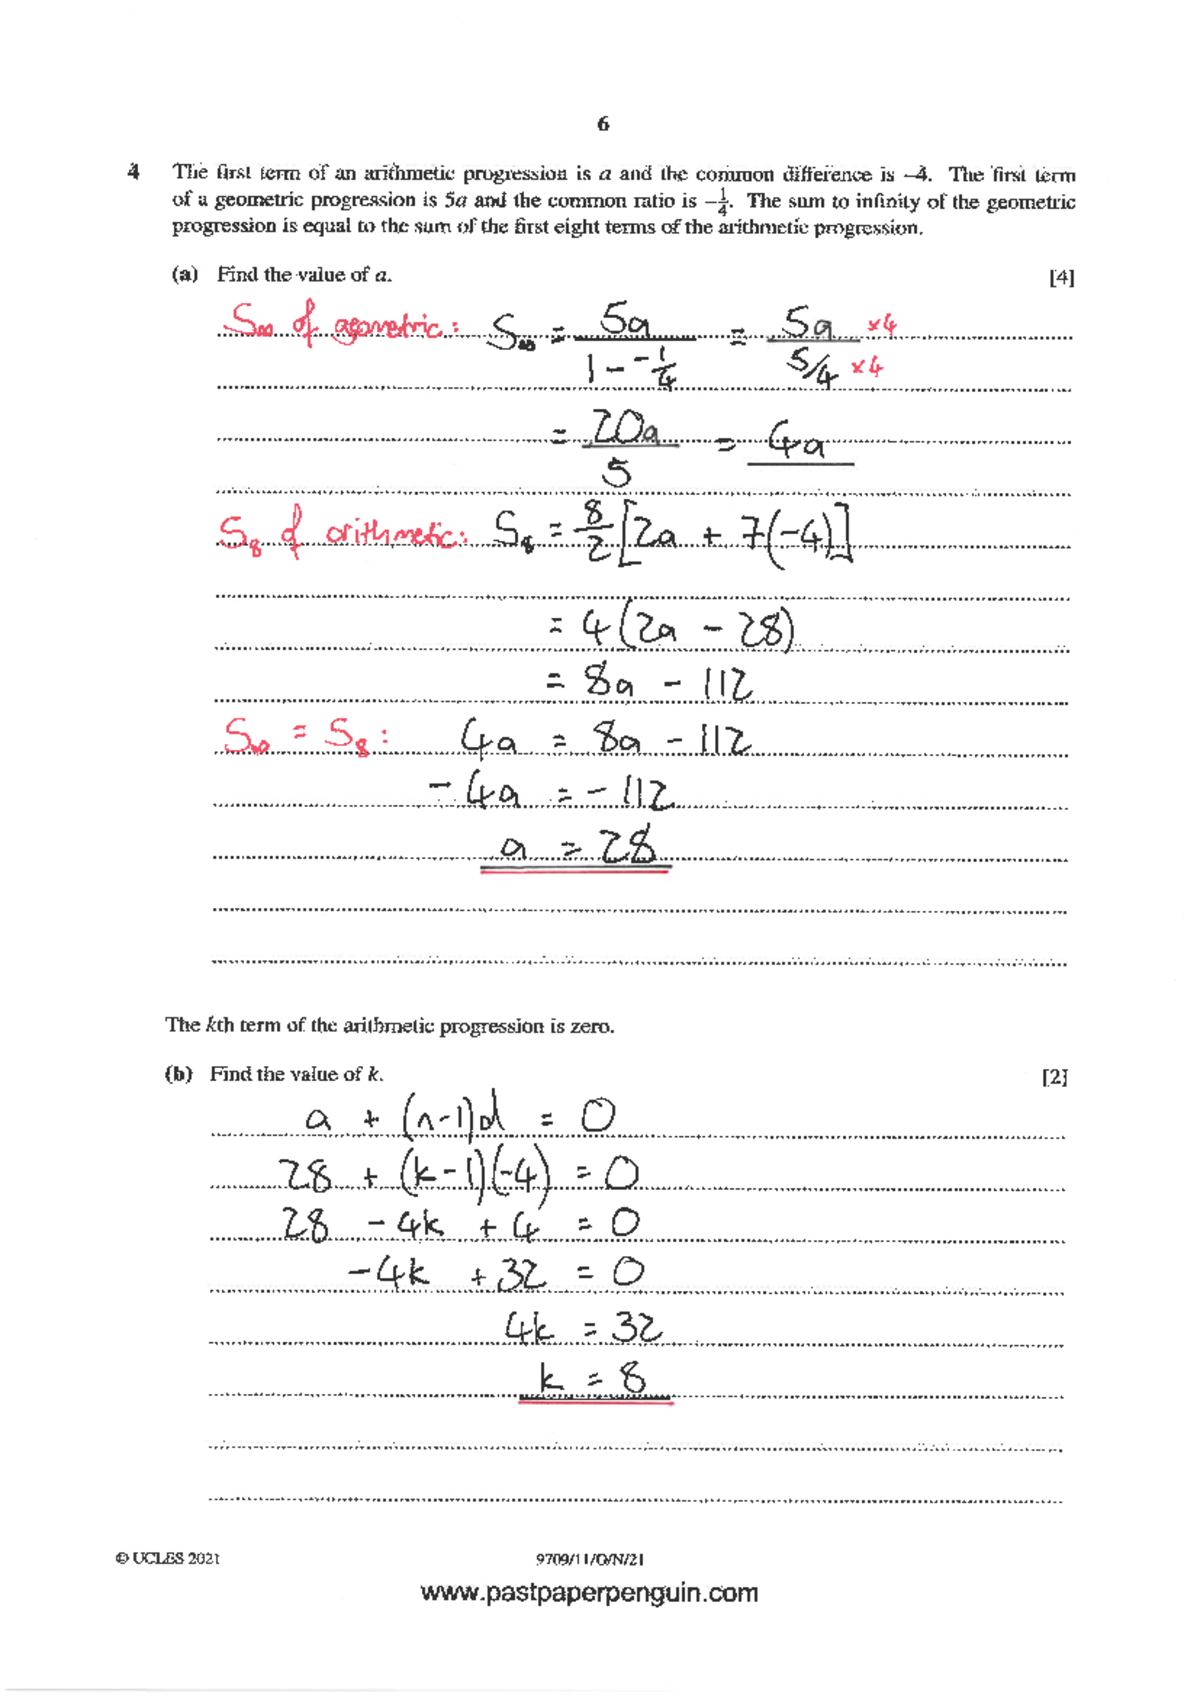 6
4 The first term of an arithmetic progression is a and the common difference is –4. The first term
of a geometric progression is 5a and the common ratio is –1/4. The sum to infinity of the geometric
progression is equal to the sum of the first eight terms of the arithmetic progression.
(a) Find the value of a. [4]
S∞ of geometric: S∞ = 5a/(1 - -1/4) = 5a/(5/4) ×4 ×4
= 20a/5 = 4a
S8 of arithmetic: S8 = 8/2 [2a + 7(-4)]
= 4(2a - 28)
= 8a - 112
S∞ = S8: 4a = 8a - 112
- 4a = - 112
a = 28
The kth term of the arithmetic progression is zero.
(b) Find the value of k. [2]
a + (n-1)d = 0
28 + (k-1)(-4) = 0
28 - 4k + 4 = 0
-4k + 32 = 0
4k = 32
k = 8
© UCLES 2021 9709/11/O/N/21
www.pastpaperpenguin.com